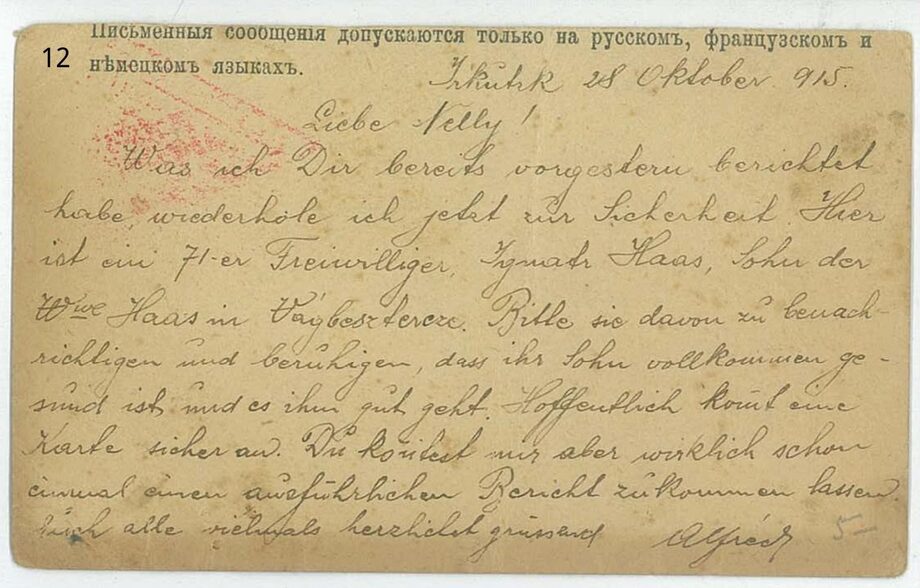 Письменныя сообщенія допускаются только на русскомъ, французскомъ и
12
нѣмецкомъ языкахъ.
Irkutzk 28 Oktober 915.
Liebe Nelly!
Was ich Dir bereits vorgestern berichtet
habe wiederhole ich jetzt zur Sicherheit. Hier
ist ein 71-er Freiwilliger, Ignatz Haas, Sohn der
Wwe Haas in Vágbesztercze. Bitte sie davon zu benach-
richtigen und beruhigen, dass ihr Sohn vollkommen ge-
sund ist und es ihm gut geht. Hoffentlich kom̄t eine
Karte sicher an. Du kön̄test mir aber wirklich schon
einmal einen ausführlichen Bericht zukommen lassen.
Euch alle vielmals herzlichst grüssend Alfréd
5